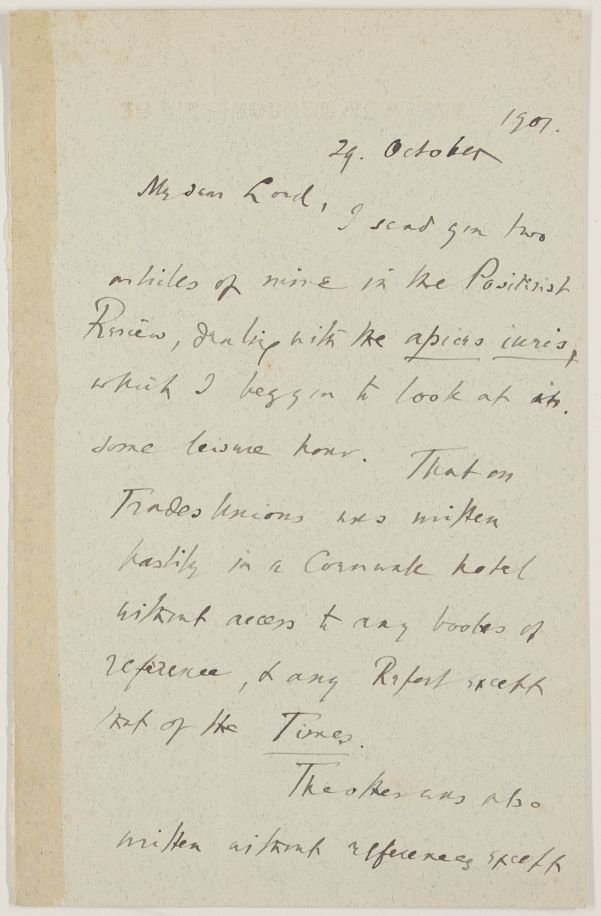 38 WESTBOURNE TERRACE
1901.
29. October
My dear Lord,
I send you two
articles of mine in the Positivist
Review, dealing with the apices iuris,
which I beg you to look at in
some leisure hour. That on
Trades Unions was written
hastily in a Cornwall hotel
without access to any books of
reference, & any Report except
that of the Times.
The other was also
written without references except